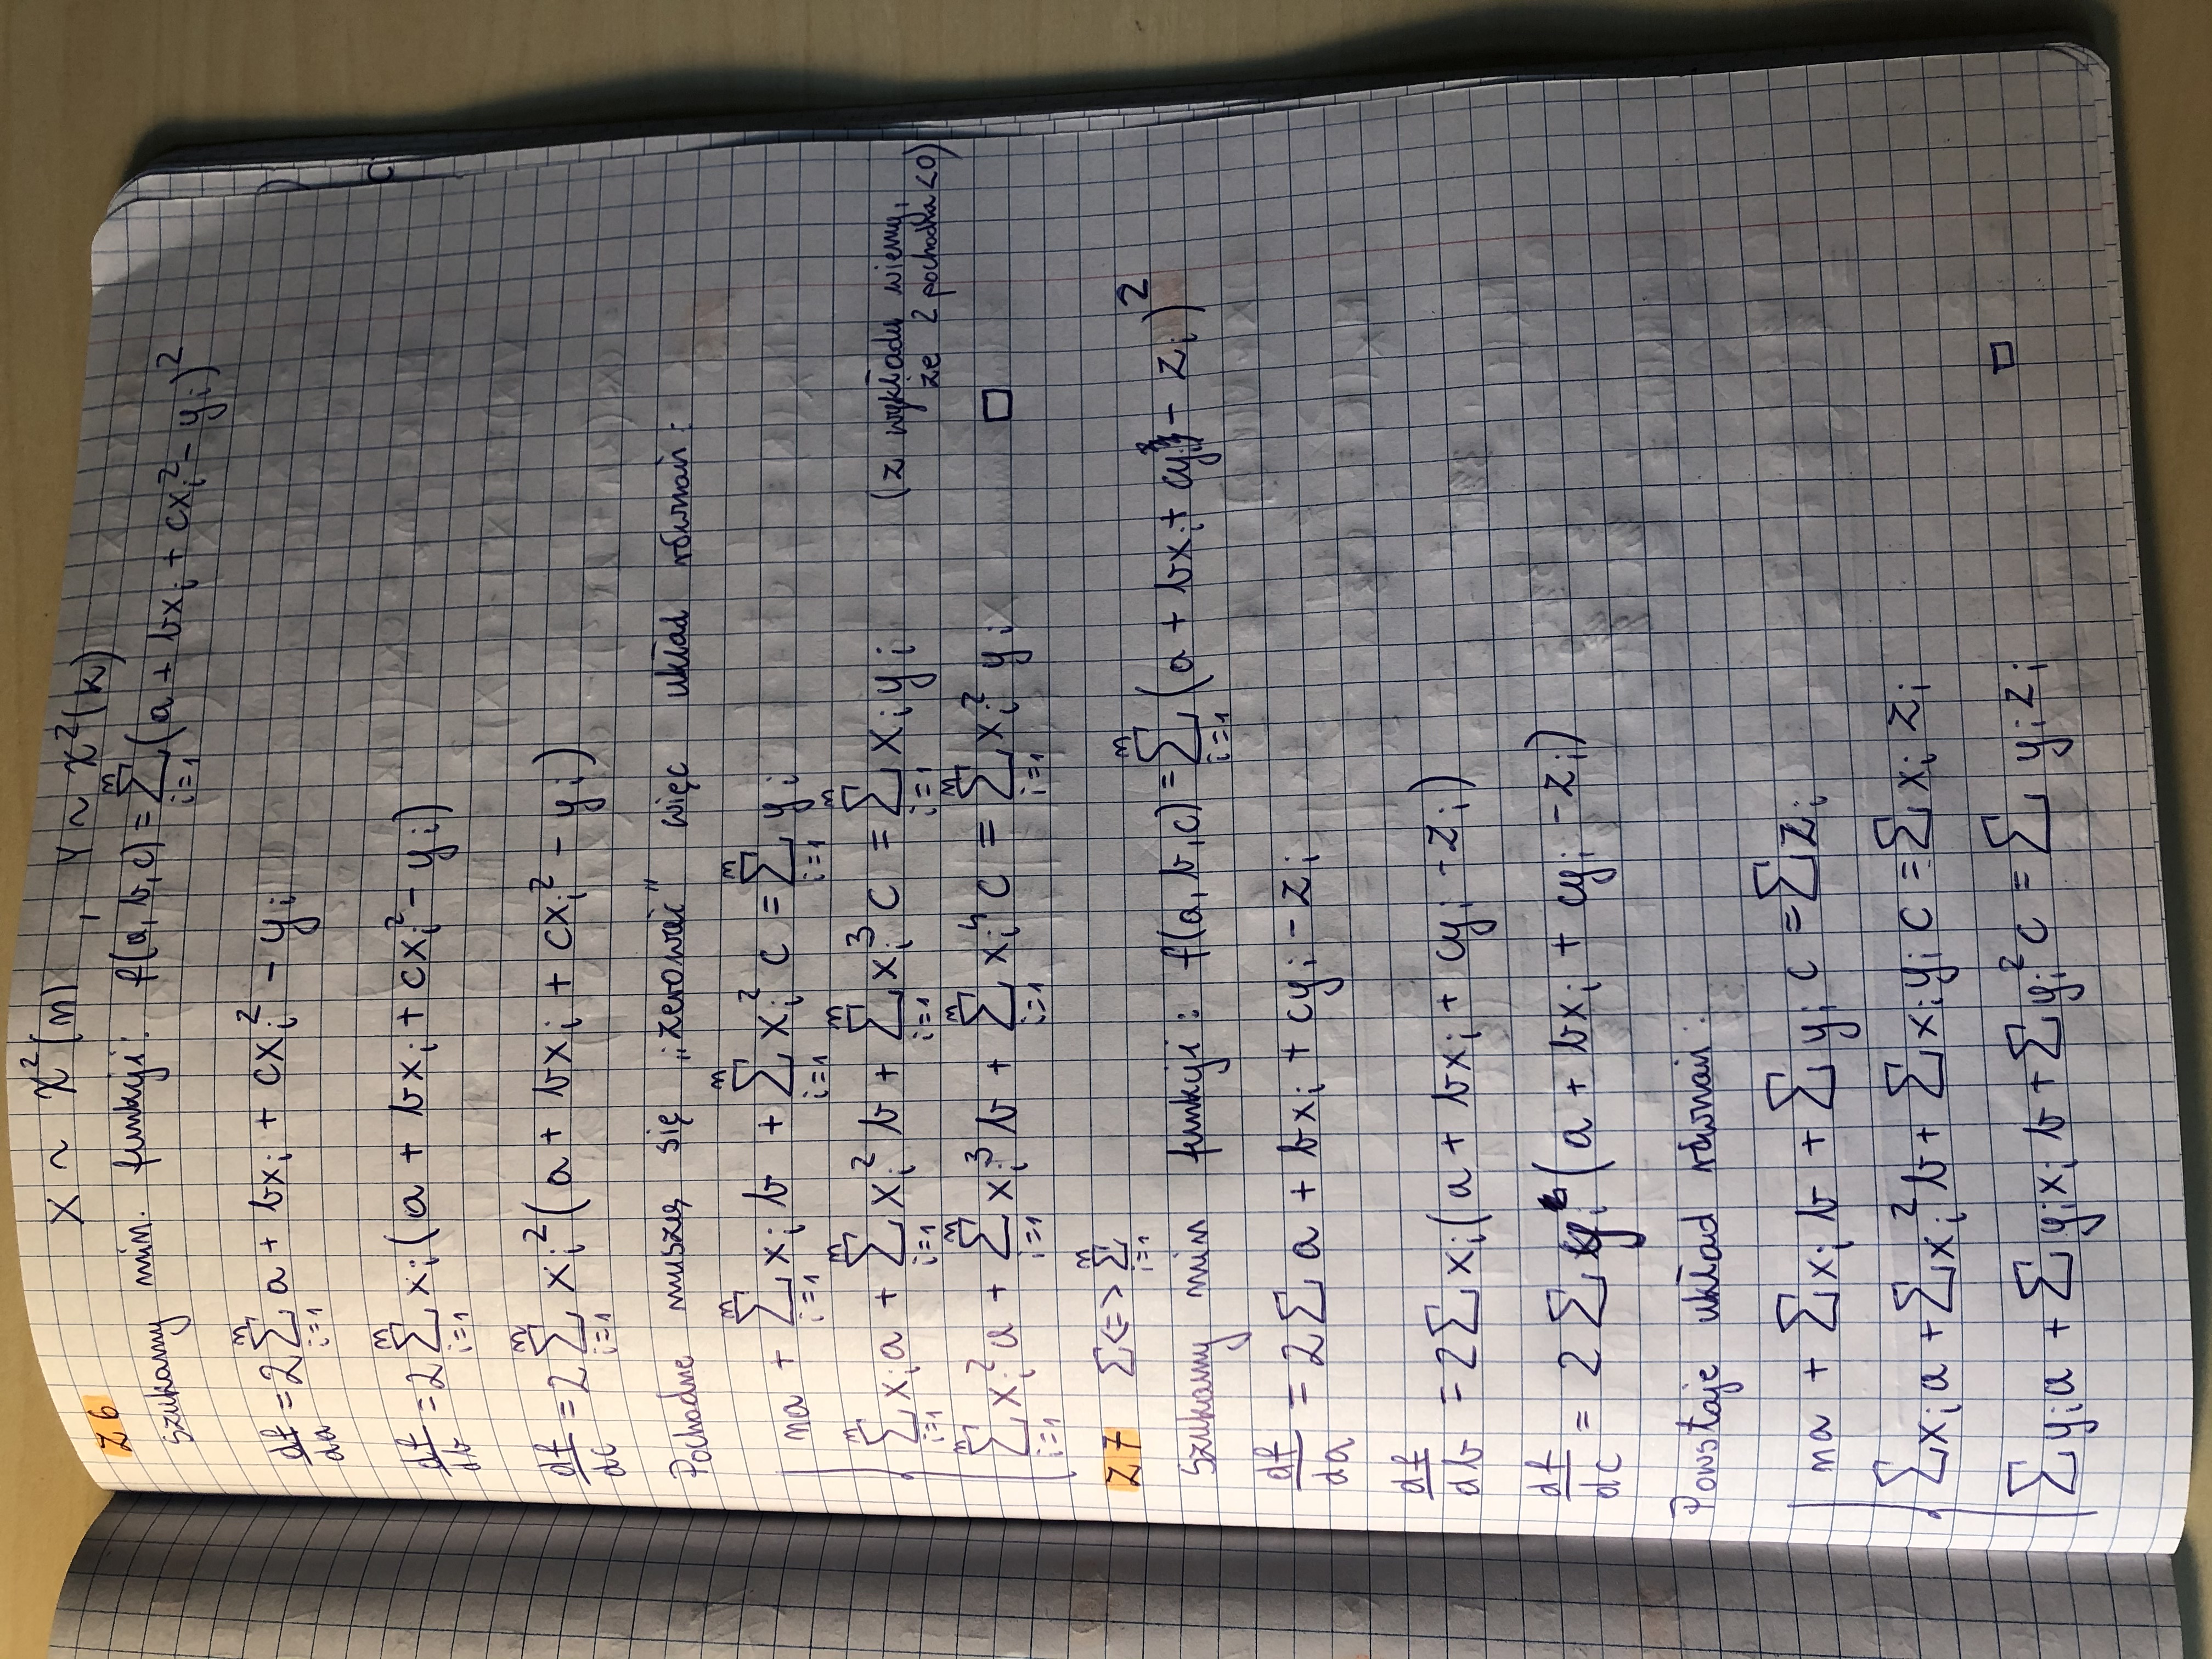 X ~ χ²(n) , Y ~ χ²(k)
Z6
Szukamy min. funkcji: f(a, b, c) = ∑_{i=1}^{n} (a + bx_i + cx_i² - y_i)²
df/da = 2 ∑_{i=1}^{n} a + bx_i + cx_i² - y_i
df/db = 2 ∑_{i=1}^{n} x_i (a + bx_i + cx_i² - y_i)
df/dc = 2 ∑_{i=1}^{n} x_i² (a + bx_i + cx_i² - y_i)
Pochodne muszą się „zerować” więc układ równań:
na + ∑_{i=1}^{n} x_i b + ∑_{i=1}^{n} x_i² c = ∑_{i=1}^{n} y_i
∑_{i=1}^{n} x_i a + ∑_{i=1}^{n} x_i² b + ∑_{i=1}^{n} x_i³ c = ∑_{i=1}^{n} x_i y_i (z wykładu wiemy,
że 2 pochodna <0)
∑_{i=1}^{n} x_i² a + ∑_{i=1}^{n} x_i³ b + ∑_{i=1}^{n} x_i⁴ c = ∑_{i=1}^{n} x_i² y_i □
Z7 ∑ <=> ∑_{i=1}^{n}
Szukamy min funkcji: f(a, b, c) = ∑_{i=1}^{n} (a + bx_i + cy_i - z_i)²
df/da = 2 ∑ a + bx_i + cy_i - z_i
df/db = 2 ∑ x_i (a + bx_i + cy_i - z_i)
df/dc = 2 ∑ y_i (a + bx_i + cy_i - z_i)
Powstaje układ równań:
na + ∑ x_i b + ∑ y_i c = ∑ z_i
∑ x_i a + ∑ x_i² b + ∑ x_i y_i c = ∑ x_i z_i
∑ y_i a + ∑ y_i x_i b + ∑ y_i² c = ∑ y_i z_i □